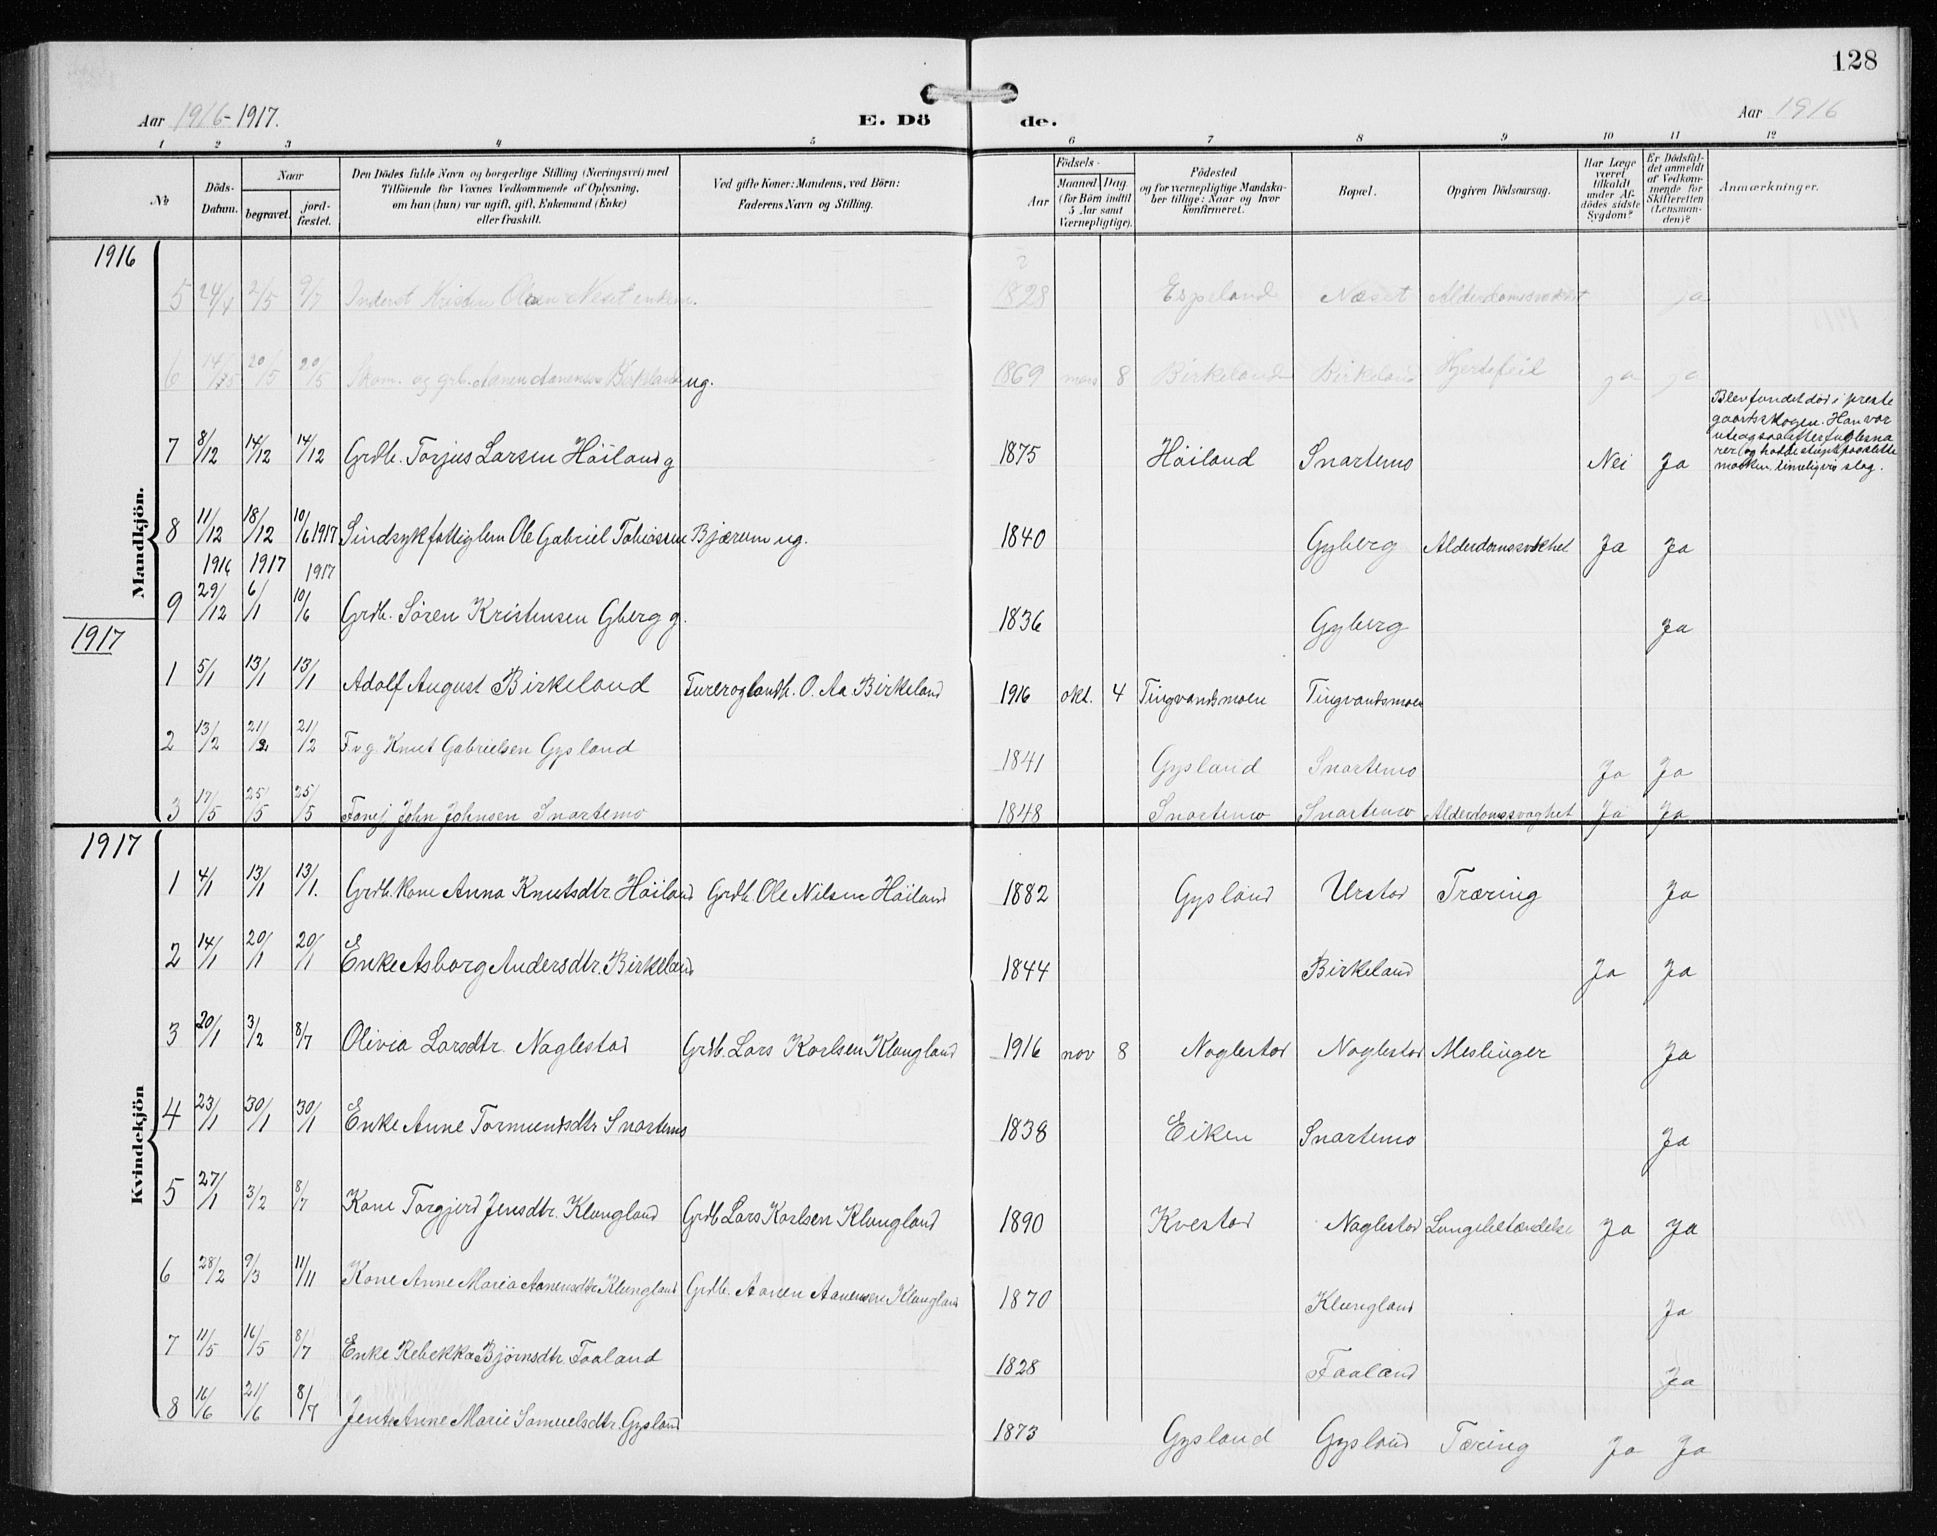 128
Aar 1916-1917.
E. Dö
de.
Aar 1916
1 2 3 4 5 6 7 8 9 10 11 12
No
Döds-Datum.
Naar
begravet.
jord-fæstet.
Den Dödes fulde Navn og borgerlige Stilling (Næringsvei) med
Tilföiende for Voxnes Vedkommende af Oplysning,
om han (hun) var ugift, gift, Enkemand (Enke)
eller fraskilt.
Ved gifte Koner: Mandens, ved Börn:
Faderens Navn og Stilling.
Födsels-
Aar
Maaned Dag
(for Börn indtil
5 Aar samt
Værnepligtige).
Födested
og for værnepligtige Mandska-
ber tillige: Naar og hvor
konfirmeret.
Bopæl.
Opgiven Dödsaarsag.
Har Læge
været
tilkaldt
under Af-
dödes sidste
Sygdom?
Er Dödsfal-
det anmeldt
af Vedkom-
mende for
Skifteretten
(Lensman-
den)?
Anmærkninger.
1916
Mandkjön.
5 24/4 2/5 9/7 Inderst Kristen Olsen Neset enkem. 1828 Espeland Næset Alderdomssvakhet ja
6 14/5 20/5 20/5 Skom. og grb. Aanen Aanensen Birkeland ug. 1869 mars 8 Birkeland Birkeland Hjertefeil ja ja
7 8/12 14/12 14/12 Grdb. Torjus Larsen Höiland g 1875 Höiland Snartemo Nei Ja
Blev fundet död i preste
gaardsskogen. Han var
ute og saa efter fuglesna
rer
8 11/12 18/12 10/6 1917 Sindsyk fattiglem Ole Gabriel Tobiassen Bjærum ug. 1840 Gyberg Alderdomssvakhet Ja Ja
1916 1917 1917
9 29/12 6/1 10/6 Grdb. Søren Kristensen Gberg g. 1836 Gyberg Ja
1917
1 5/1 13/1 13/1 Adolf August Birkeland O. Aa Birkeland 1916 okt. 4 Tingvandsmoen Tingvandsmoen
2 13/2 21/2 21/2 Fvg Knut Gabrielsen Gysland 1841 Gysland Snartemo Ja Ja
3 17/5 25/5 25/5 John Johnsen Snartemo 1848 Snartemo Snartemo Alderdomssvaghet Ja Ja
1917
Kvindekjön
1 4/1 13/1 13/1. Grdb. kone Anna Knutsdtr. Höiland Grdb. Ole Nilsen Höiland 1882 Gysland Urstad Træring Ja
2 14/1 20/1 20/1 Enke Asborg Andersdtr. Birkeland 1844 Birkeland Ja Ja
3 20/1 3/2 8/7 Olivia Larsdtr. Naglestad Grdb. Lars Karlsen Klungland 1916 nov 8 Naglestad Naglestad Meslinger Ja
4 23/1 30/1 30/1 Enke Anne Tormundsdtr Snartemo 1838 Eiken Snartemo Ja
5 27/1 3/2 8/7 Kone Torgjerd Jensdtr. Klungland Grdb Lars Karlsen Klungland 1890 Kvestad Naglestad Lungebetændelse Ja Ja
6 28/2 9/3 11/11 Kone Anne Maria Aanensdtr Klungland Grdb. Aanen Aanensen Klungland 1870 Klungland Ja
7 11/5 16/5 8/7 Enke Rebekka Bjørnsdtr. Faaland 1828 Faaland Ja
8 16/6 21/6 8/7 Jente Anne Marie Samuelsdtr. Gysland 1873 Gysland Gysland Tæring Ja Ja